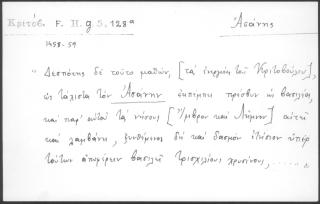 Κριτόβ. F. H. g S. 128ᵃ
Ἀσάνης
1458-59
"Δεσπότης δὲ τοῦτο μαθὼν, [τὰ ἐνεργείᾳ τοῦ Κριτοβούλου],
ὡς τάχιστα τὸν Ἀσάνην ἐκπέμπει πρέσβυν ὡς βασιλέα,
καὶ παρ' αὐτοῦ τὰς νήσους [Ἴμβρον καὶ Λῆμνον] αἰτεῖ
καὶ λαμβάνει, ξυνθέμενος δὲ καὶ δασμὸν ἐτήσιον ὑπὲρ
τούτων ἀποφέρειν βασιλεῖ τρισχιλίους χρυσίνους, ......"